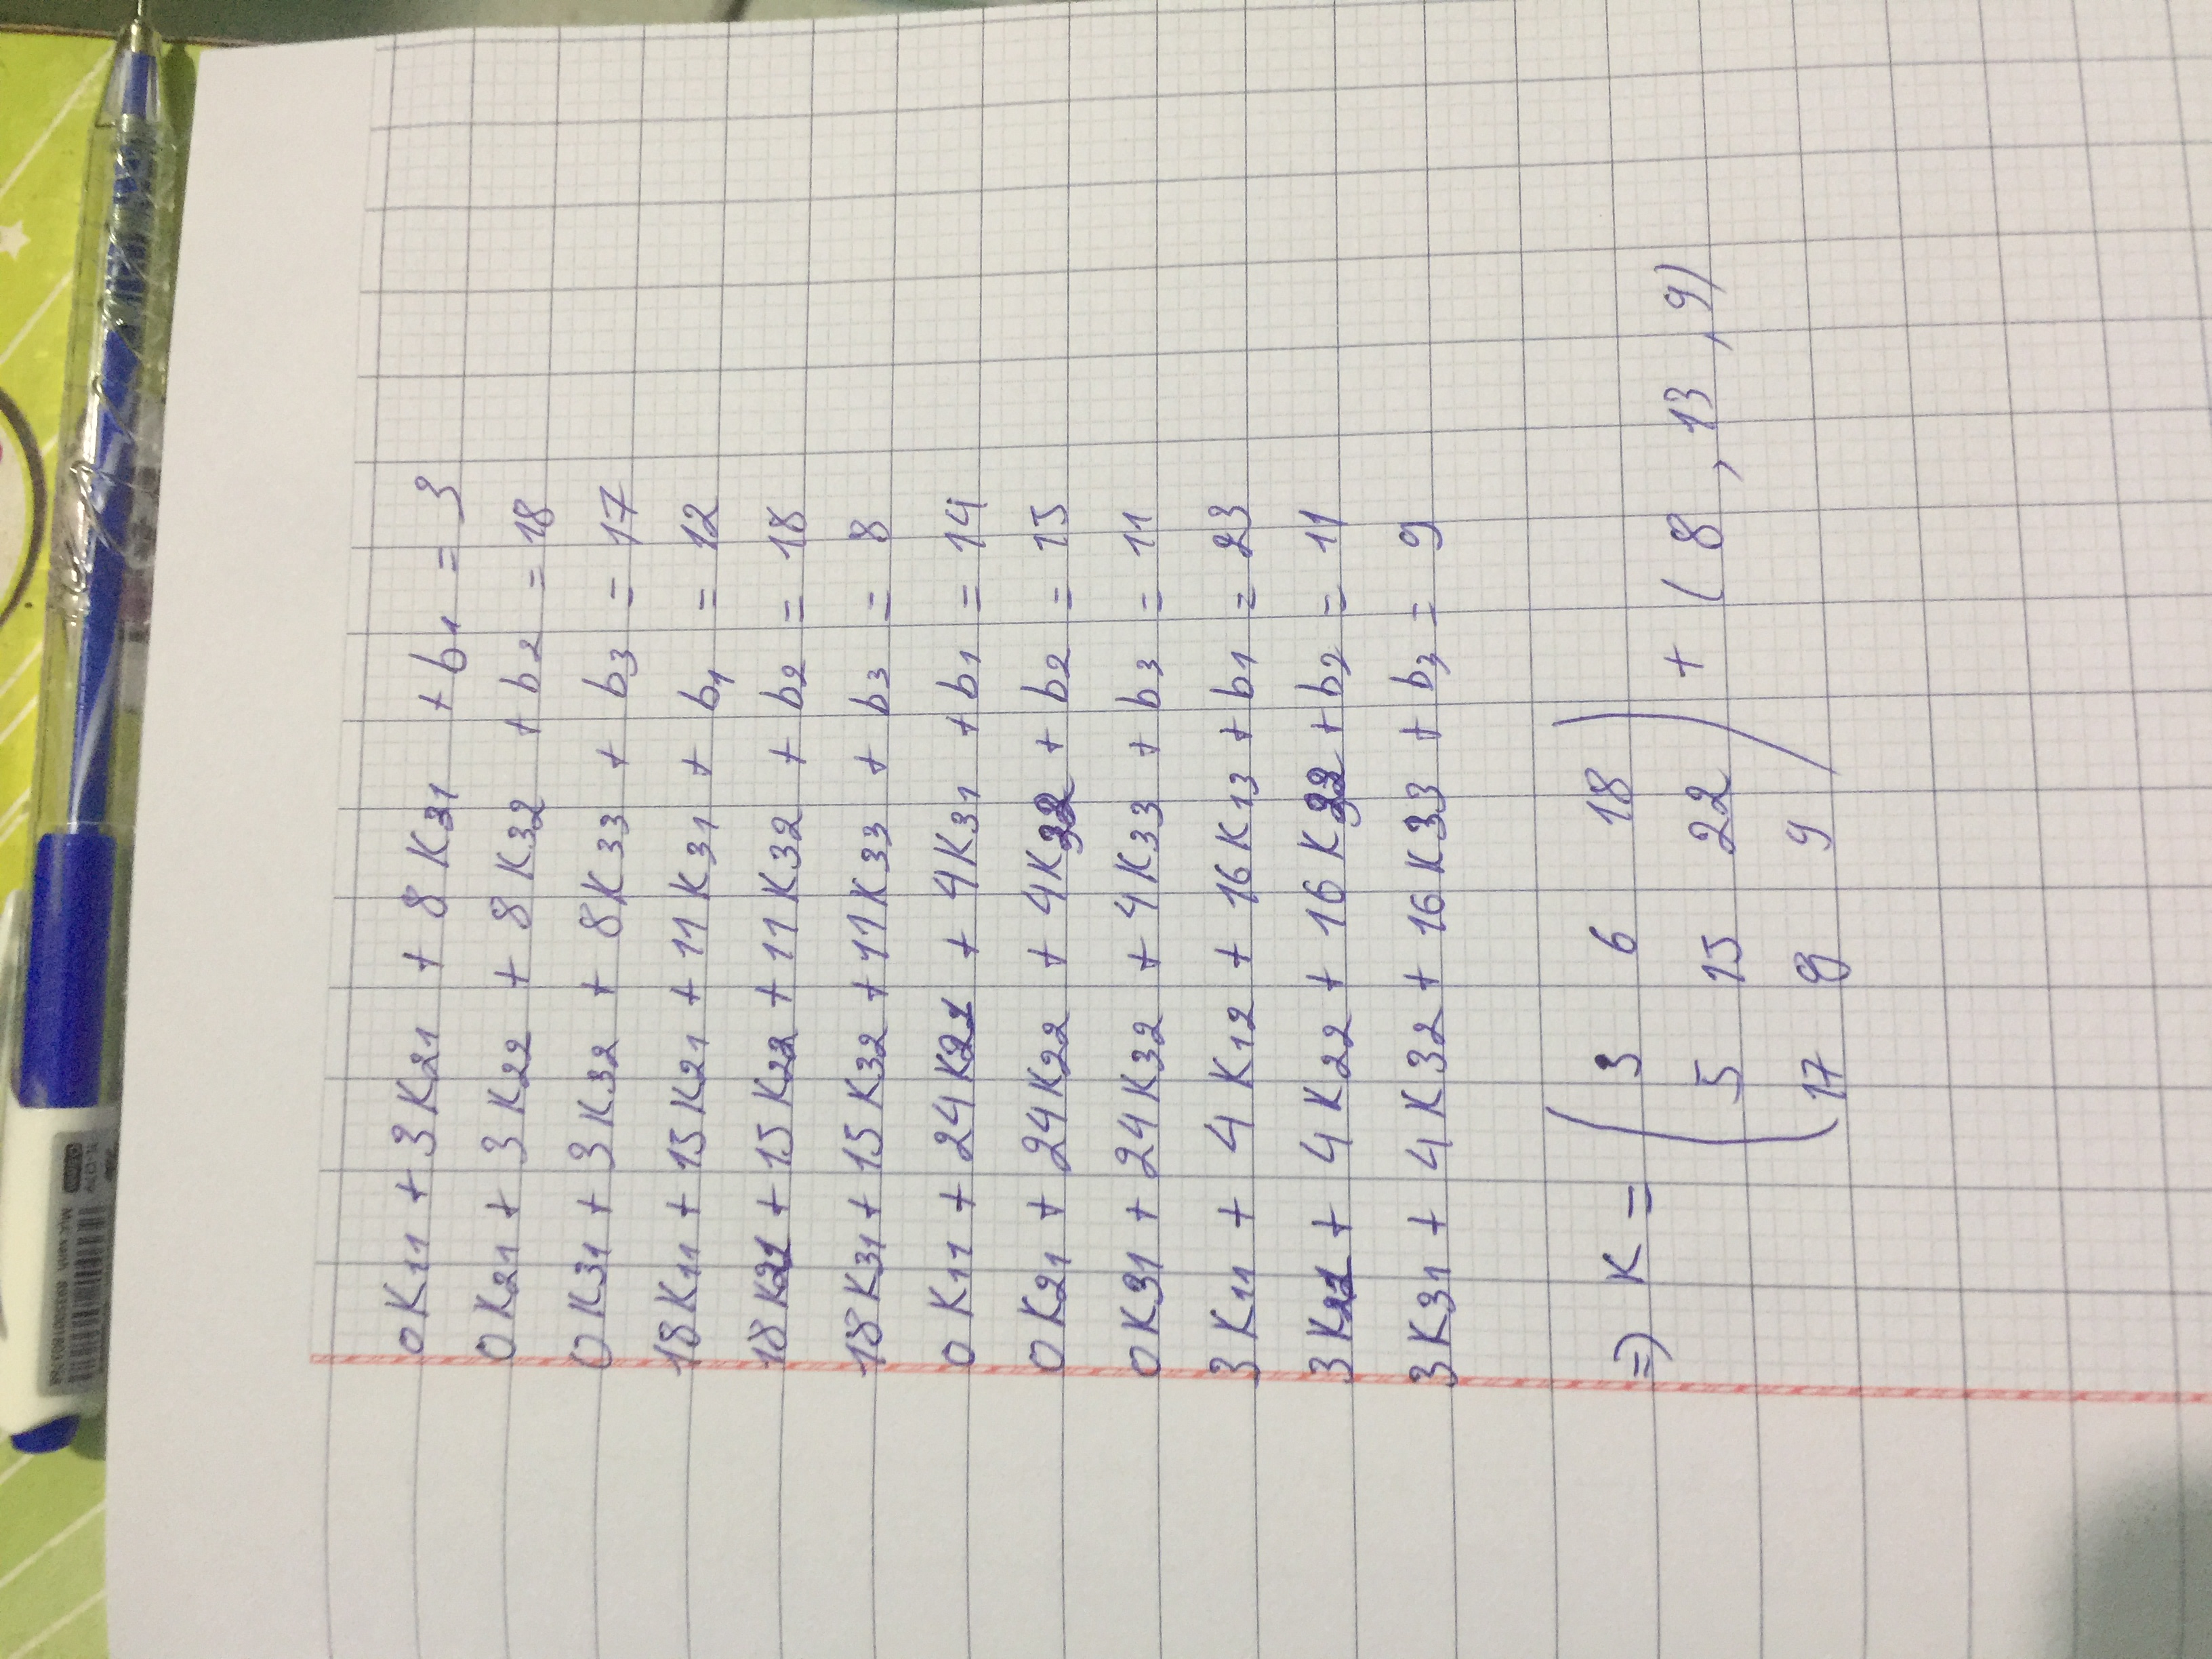 Mực xanh 8935001803768
0K11 + 3K21 + 8K31 + b1 = 3
0K21 + 3K22 + 8K32 + b2 = 18
0K31 + 3K32 + 8K33 + b3 = 17
18K11 + 15K21 + 11K31 + b1 = 12
18K21 + 15K22 + 11K32 + b2 = 18
18K31 + 15K32 + 11K33 + b3 = 8
0K11 + 24K21 + 4K31 + b1 = 14
0K21 + 24K22 + 4K32 + b2 = 15
0K31 + 24K32 + 4K33 + b3 = 11
3K11 + 4K12 + 16K13 + b1 = 23
3K21 + 4K22 + 16K32 + b2 = 11
3K31 + 4K32 + 16K33 + b3 = 9
3 6 18
=> K = ( 5 15 22 ) + ( 8 , 13 , 9)
17 8 9